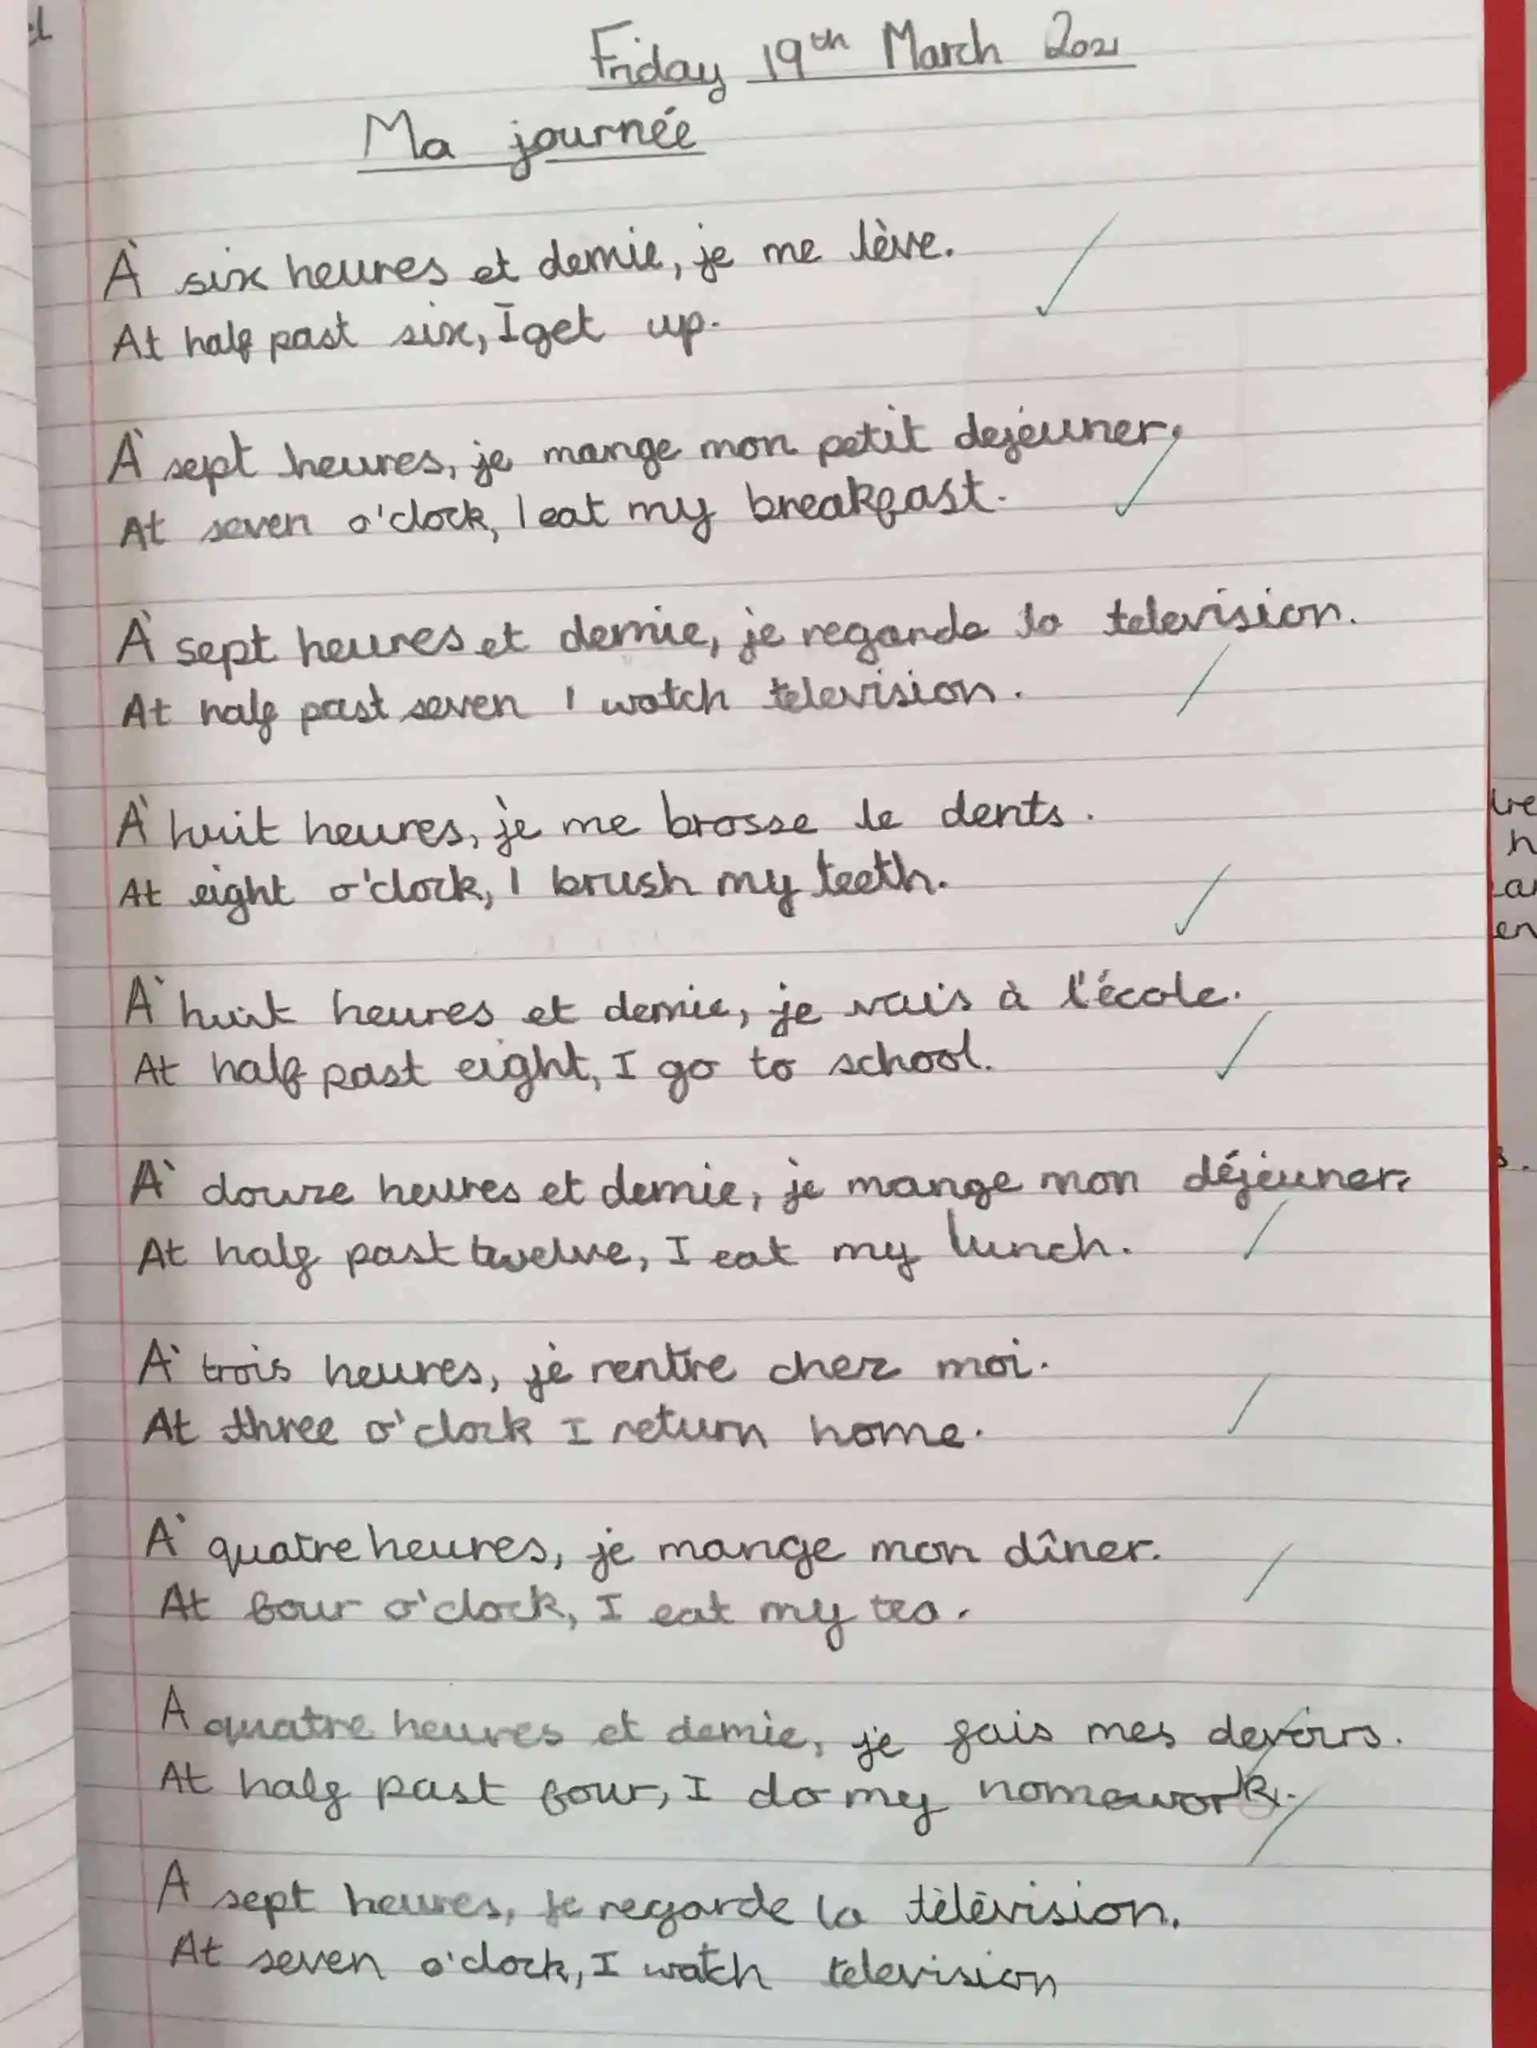 Friday 19th March 2021
Ma journée
À six heures et demie, je me lève.
At half past six, I get up.
À sept heures, je mange mon petit dejéuner.
At seven o'clock, I eat my breakfast.
À sept heures et demie, je regarde la television.
At half past seven I watch television.
À huit heures, je me brosse le dents.
At eight o'clock, I brush my teeth.
À huit heures et demie, je vais à l'école.
At half past eight, I go to school.
À douze heures et demie, je mange mon déjéuner.
At half past twelve, I eat my lunch.
À trois heures, je rentre chez moi.
At three o'clock I return home.
À quatre heures, je mange mon dîner.
At four o'clock, I eat my tea.
A quatre heures et demie, je fais mes devoirs.
At half past four, I do my homework.
A sept heures, je regarde la télévision.
At seven o'clock, I watch television